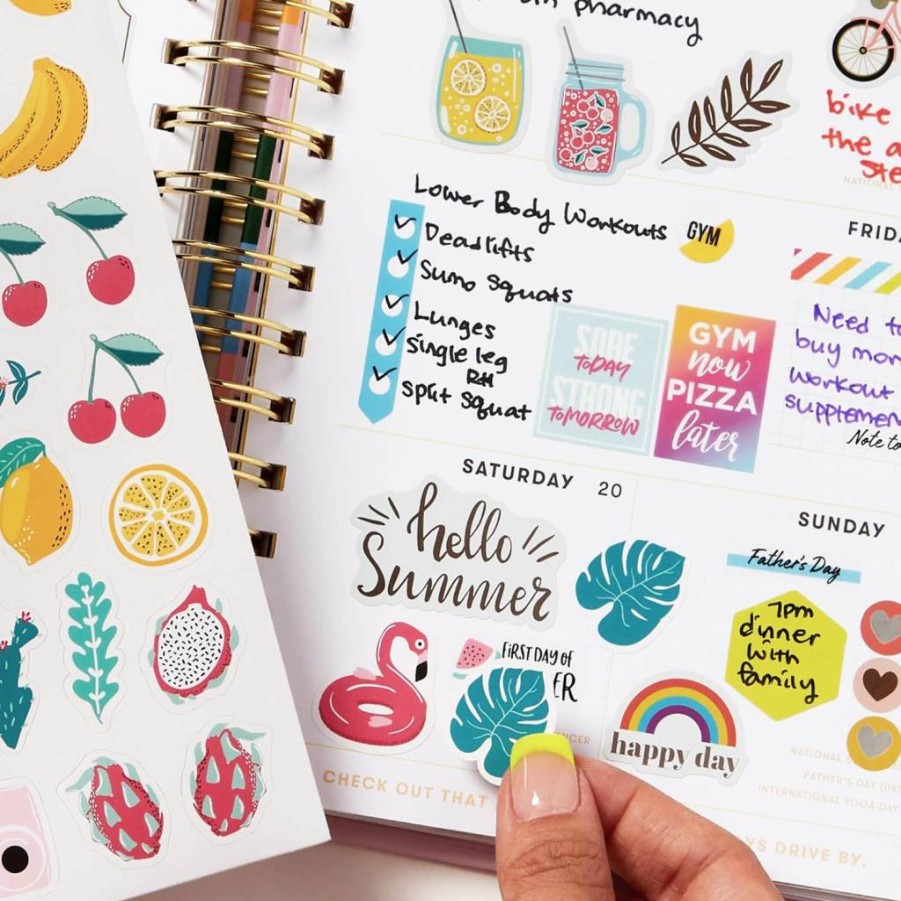 pharmacy
bike
the a
NATIONAL
Lower Body Workouts
GYM
Deadlifts
Sumo Squats
Lunges
Single leg
RH
Split Squat
SORE
TODAY
STRONG
TOMORROW
GYM
now
PIZZA
later
FRIDA
Need to
buy mor
workout
supplemen
Note to
SATURDAY 20
hello
Summer
FIRST DAY OF
ER
happy day
SUNDAY
Father's Day
7pm
dinner
with
family
NATIONAL
FATHER'S DAY
INTERNATIONAL YOGA DAY
CHECK OUT THAT
YS DRIVE BY.